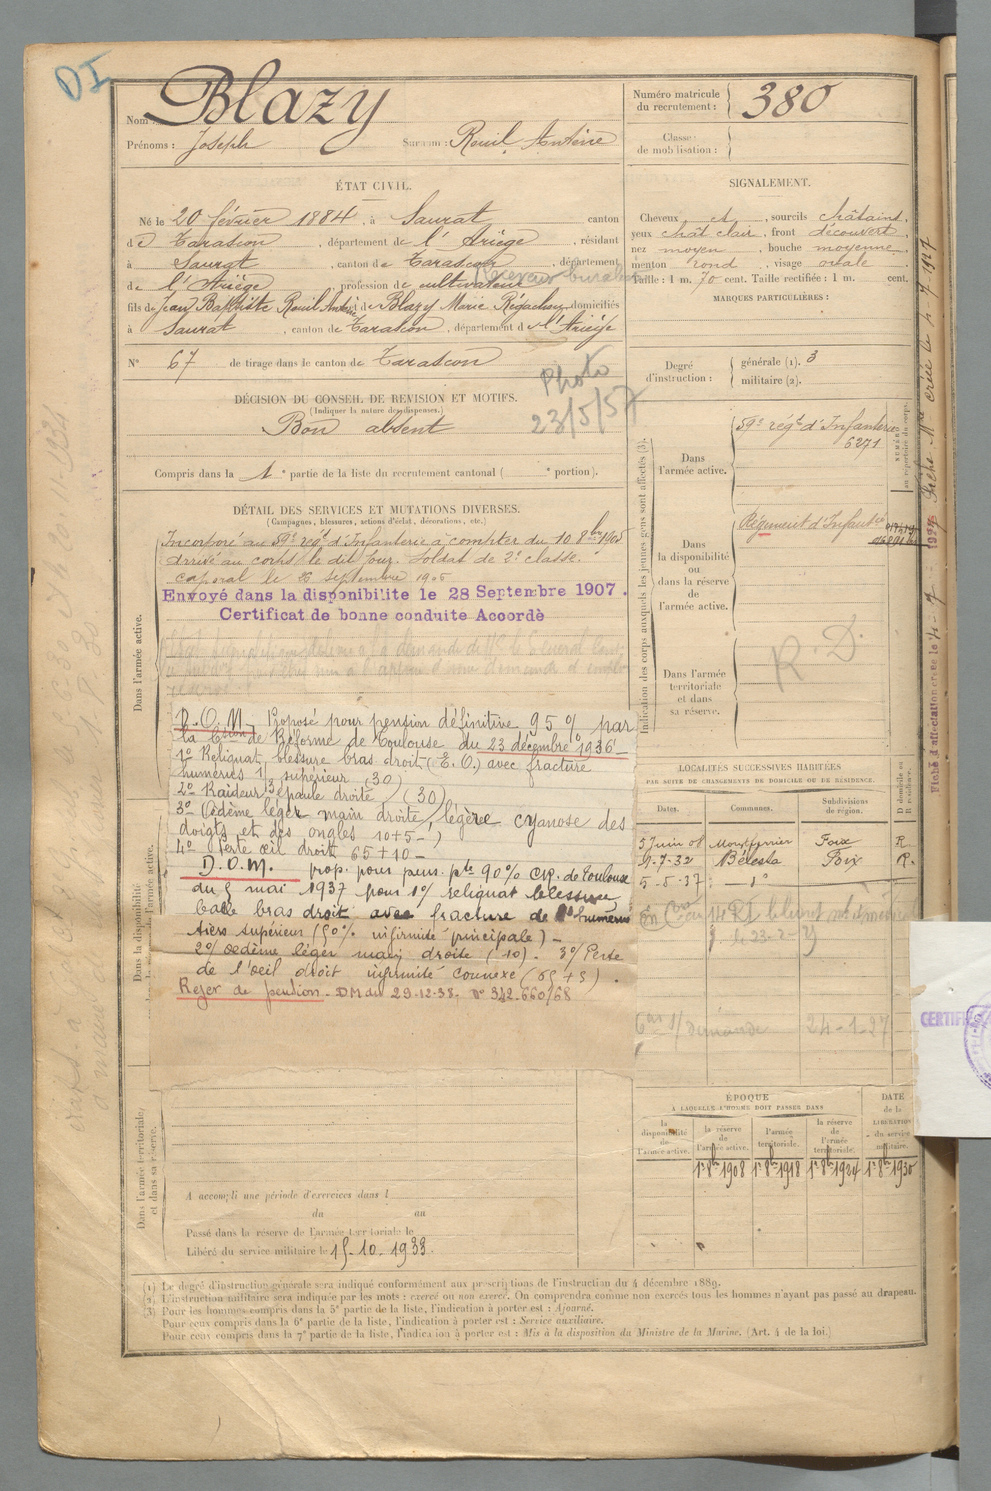 DI
Nom : Blazy
Prénoms : Joseph Surnom : Rouil Antérie
Numéro matricule du recrutement : 380
Classe de mobilisation :
ÉTAT CIVIL.
Né le 20 février 1884, à Saurat canton
de Tarascon, département de l'Ariège, résidant
à Saurat, canton de Tarascon, département
Receveur buraliste
de l'Ariège profession de cultivateur
fils de Jean Baptiste Rouil Antérie et de Blazy Marie domiciliés
à Saurat, canton de Tarascon, département de l'Ariège
N° 67 de tirage dans le canton de Tarascon
Photo
23/5/57
DÉCISION DU CONSEIL DE RÉVISION ET MOTIFS.
(Indiquer la nature des dispenses.)
Bon absent
Compris dans la 1e partie de la liste du recrutement cantonal ( e portion).
SIGNALEMENT.
Cheveux et, sourcils châtains,
yeux chât clair, front découvert,
nez moyen, bouche moyenne,
menton rond, visage ovale
Taille : 1 m. 70 cent. Taille rectifiée : 1 m. cent.
MARQUES PARTICULIÈRES :
Degré d'instruction :
générale (1). 3
militaire (2).
DÉTAIL DES SERVICES ET MUTATIONS DIVERSES.
(Campagnes, blessures, actions d'éclat, décorations, etc.)
Dans l'armée active.
Incorporé au 59e régt d'Infanterie à compter du 10 8bre 1905
arrivé au corps le dit jour. Soldat de 2e classe.
caporal le 25 septembre 1906
Envoyé dans la disponibilité le 28 Septembre 1907.
Certificat de bonne conduite Accordé
P.O.M. Proposé pour pension définitive 95% par
la Cion de Réforme de Toulouse du 23 décembre 1936
1° Reliquat blessure bras droit (E.O.) avec fracture
humérus 1/3 supérieur (30)
2° Raideur épaule droite (30)
3° Oedème léger main droite, légère cyanose des
doigts et des ongles 10+5
4° Perte œil droit 65+10
D.O.M. prop. pour pens. pte 90% CR. de Toulouse
du 5 mai 1937 pour 1°/ reliquat blessure
balle bras droit avec fracture de l'humérus
tiers supérieur (50% infirmité principale)
2°/ œdème léger main droite (10). 3°/ Perte
de l'œil droit infirmité connexe (65+5).
Rejet de pension. DM du 29.12.38. N° 342.660/68
Dans la disponibilité
Indication des corps auxquels les jeunes gens sont affectés (3).
NUMÉRO au répertoire du corps.
Dans l'armée active.
59e régt d'Infanterie
6271
Dans la disponibilité ou dans la réserve de l'armée active.
Régiment d'Infantrie
Dans l'armée territoriale et dans sa réserve.
R.D.
LOCALITÉS SUCCESSIVES HABITÉES
PAR SUITE DE CHANGEMENTS DE DOMICILE OU DE RÉSIDENCE.
Dates. Communes. Subdivisions de région. D domicile ou R résidence.
5 Juin 08 Montferrier Foix R.
9-7-32 Bélesta Foix R.
5-5-37 — d° —
24-1-27
ÉPOQUE
À LAQUELLE L'HOMME DOIT PASSER DANS
la disponibilité de l'armée active.
la réserve de l'armée active.
l'armée territoriale.
la réserve de l'armée territoriale.
DATE de la LIBÉRATION du service militaire.
1r 8bre 1908 1r 8bre 1918 1r 8bre 1924 1r 8bre 1930
Dans l'armée territoriale, et dans sa réserve.
A accompli une période d'exercices dans l
du au
Passé dans la réserve de l'armée territoriale le
Libéré du service militaire le 15-10-1933.
(1) Le degré d'instruction générale sera indiqué conformément aux prescriptions de l'instruction du 4 décembre 1889.
(2) L'instruction militaire sera indiquée par les mots : exercé ou non exercé. On comprendra comme non exercés tous les hommes n'ayant pas passé au drapeau.
(3) Pour les hommes compris dans la 5e partie de la liste, l'indication à porter est : Ajourné.
Pour ceux compris dans la 6e partie de la liste, l'indication à porter est : Service auxiliaire.
Pour ceux compris dans la 7e partie de la liste, l'indication à porter est : Mis à la disposition du Ministre de la Marine. (Art. 4 de la loi.)
CERTIFI